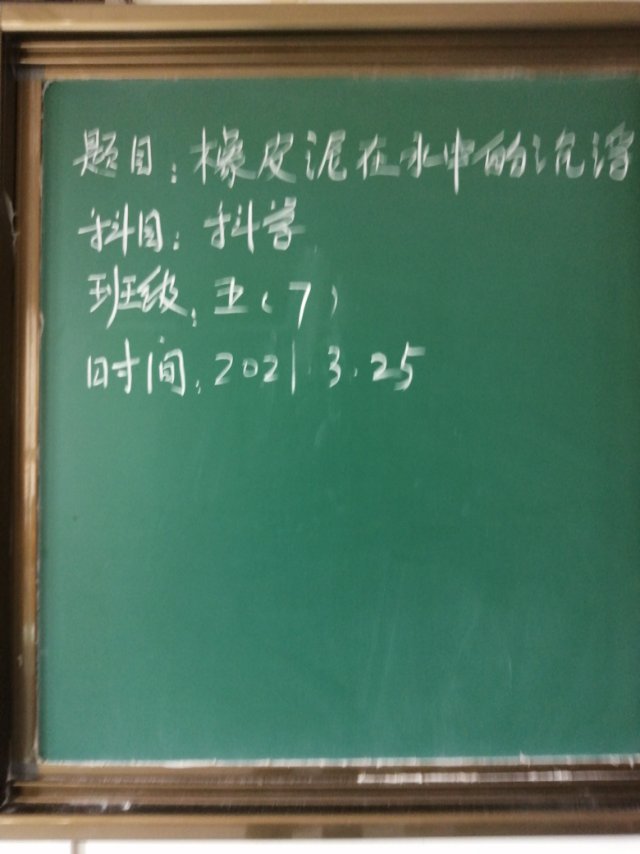 题目：橡皮泥在水中的沉浮
科目：科学
班级：五（7）
时间：2021.3.25